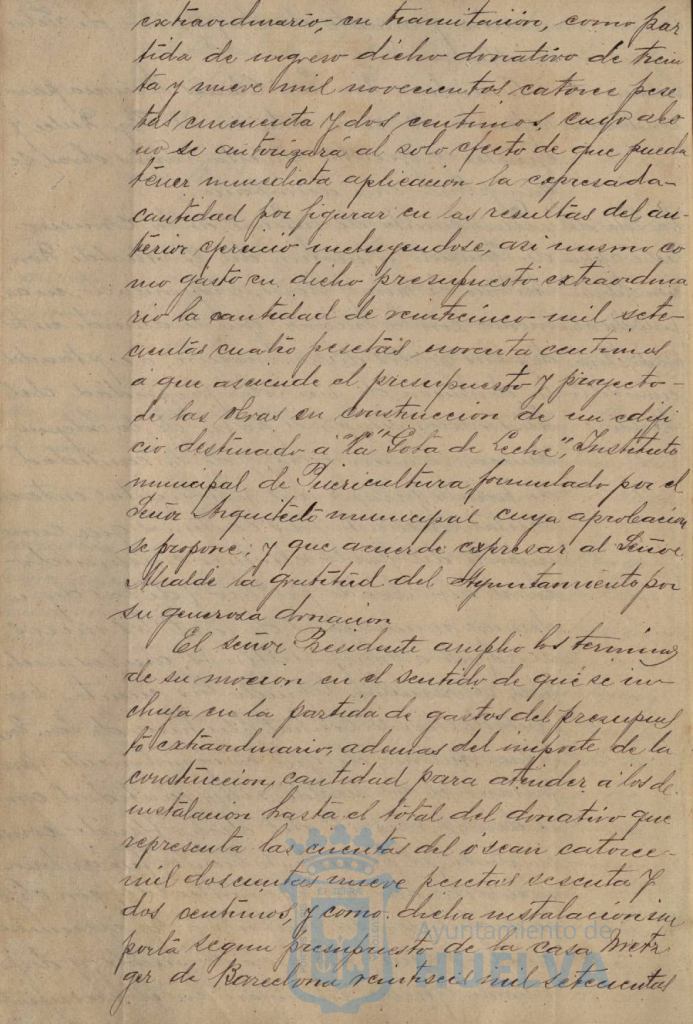 extraordinario, en tramitación, como par
tida de ingreso dicho donativo de trein
ta y nueve mil novecientos catorce pese
tas cincuenta y dos centimos, cuyo abo
no se autorizará al solo efecto de que pueda
tener inmediata aplicacion la expresada
cantidad por figurar en las resultas del an
terior ejercicio incluyendose, asi mismo co
mo gasto en dicho presupuesto extraordina
rio la cantidad de veinticinco mil sete
cientas cuatro pesetas noventa centimos
a que asciende el presupuesto y proyecto
de las obras en construccion de un edifi
cio destinado á "la "Gota de Leche", Instituto
municipal de Puericultura formulado por el
Señor Arquitecto municipal cuya aprobacion
se propone; y que acuerde expresar al Señor
Alcalde la gratitud del Ayuntamiento por
su generosa donacion
El señor Presidente amplio los terminos
de su mocion en el sentido de que se in
cluya en la partida de gastos del presupues
to extraordinario, ademas del importe de la
construccion, cantidad para atender á los de
instalacion hasta el total del donativo que
representa las cuentas del ó sean catorce
mil doscientas nueve pesetas sesenta y
dos centimos, y como dicha instalacion im
porta segun presupuesto de la casa Metz
ger de Barcelona veintiseis mil setecientas
Ayuntamiento de
HUELVA